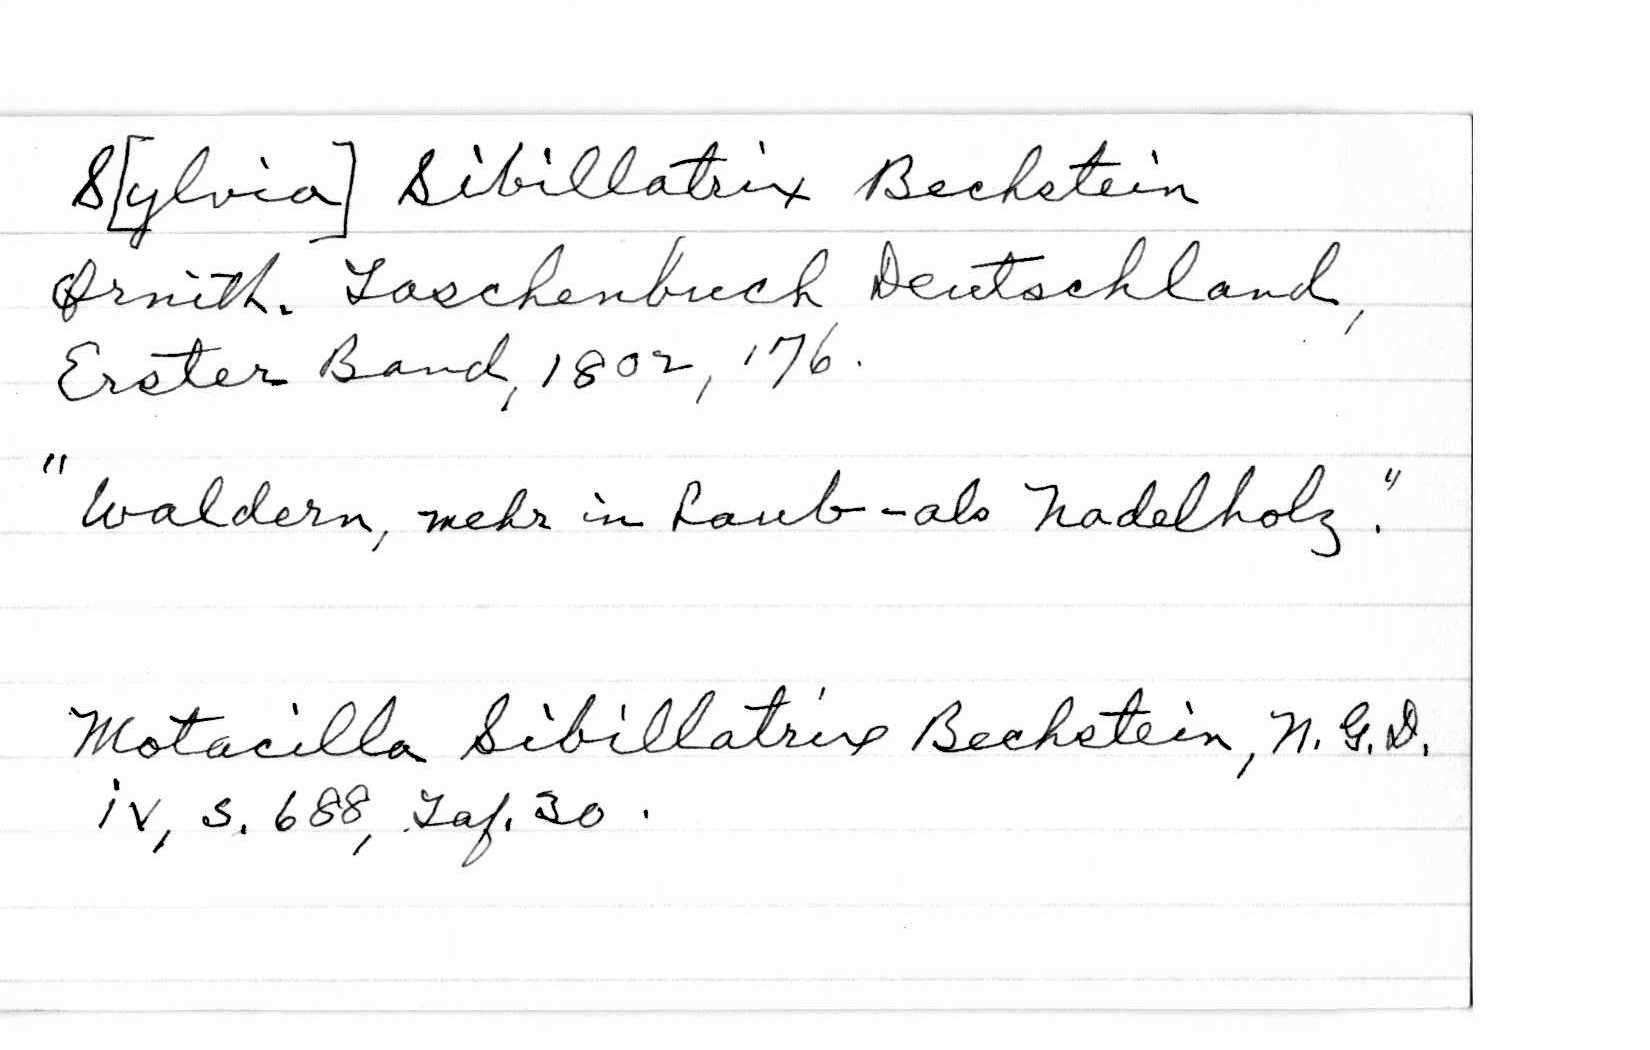 S[ylvia] Sibillatrix Bechstein
Ornith. Taschenbuch Deutschland,
Erster Band, 1802, 176.
"Waldern, mehr in Laub-als Nadelholz."
Motacilla Sibillatrix Bechstein, N.G.D.
iv, S. 688, Taf. 30.